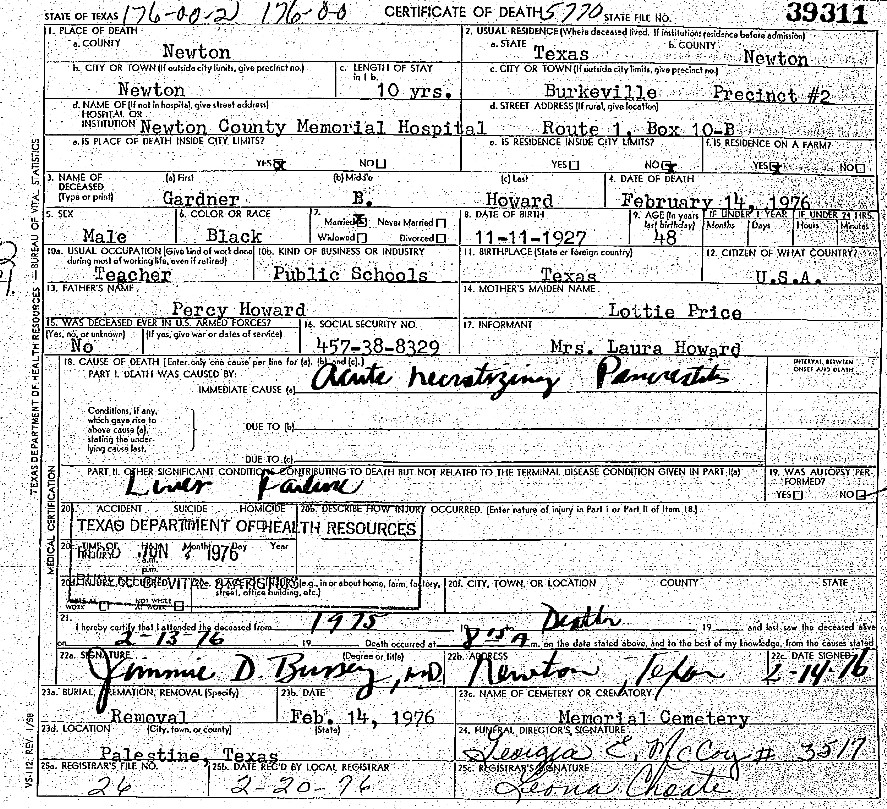 STATE OF TEXAS 176-00-2 176-00 CERTIFICATE OF DEATH 5770 STATE FILE NO. 39311
1. PLACE OF DEATH 2. USUAL RESIDENCE (Where deceased lived. If institution: residence before admission)
a. COUNTY Newton a. STATE Texas b. COUNTY Newton
b. CITY OR TOWN (If outside city limits, give precinct no.) Newton c. LENGTH OF STAY in 1 b. 10 yrs. c. CITY OR TOWN (If outside city limits, give precinct no.) Burkeville Precinct #2
d. NAME OF (If not in hospital, give street address) HOSPITAL OR INSTITUTION Newton County Memorial Hospital d. STREET ADDRESS (If rural, give location) Route 1, Box 10-B
e. IS PLACE OF DEATH INSIDE CITY LIMITS? e. IS RESIDENCE INSIDE CITY LIMITS? f. IS RESIDENCE ON A FARM?
YES NO YES NO YES NO
3. NAME OF DECEASED (Type or print) (a) First Gardner (b) Middle B. (c) Last Howard 4. DATE OF DEATH February 14, 1976
5. SEX Male 6. COLOR OR RACE Black 7. Married Never Married Widowed Divorced 8. DATE OF BIRTH 11-11-1927 9. AGE (In years last birthday) 48 IF UNDER 1 YEAR Months Days IF UNDER 24 HRS. Hours Minutes
10a. USUAL OCCUPATION (Give kind of work done during most of working life, even if retired) Teacher 10b. KIND OF BUSINESS OR INDUSTRY Public Schools 11. BIRTHPLACE (State or foreign country) Texas 12. CITIZEN OF WHAT COUNTRY? U.S.A.
13. FATHER'S NAME Percy Howard 14. MOTHER'S MAIDEN NAME Lottie Price
15. WAS DECEASED EVER IN U.S. ARMED FORCES? (Yes, no, or unknown) No (If yes, give war or dates of service) 16. SOCIAL SECURITY NO. 457-38-8329 17. INFORMANT Mrs. Laura Howard
18. CAUSE OF DEATH [Enter only one cause per line for (a), (b), and (c).] INTERVAL BETWEEN ONSET AND DEATH
PART I. DEATH WAS CAUSED BY:
IMMEDIATE CAUSE (a) Acute necrotizing Pancreatitis
Conditions, if any, which gave rise to above cause (a), stating the underlying cause last.
DUE TO (b)
DUE TO (c)
PART II. OTHER SIGNIFICANT CONDITIONS CONTRIBUTING TO DEATH BUT NOT RELATED TO THE TERMINAL DISEASE CONDITION GIVEN IN PART I(a) 19. WAS AUTOPSY PERFORMED?
Liver Failure YES NO
ACCIDENT SUICIDE HOMICIDE 20b. DESCRIBE HOW INJURY OCCURRED. (Enter nature of injury in Part I or Part II of Item 18.)
TEXAS DEPARTMENT OF HEALTH RESOURCES
JUN 1976
Month Day Year
(e.g., in or about home, farm, factory, street, office building, etc.) 20f. CITY, TOWN, OR LOCATION COUNTY STATE
21. I hereby certify that I attended the deceased from 1975 Death 19 and last saw the deceased alive
on 2-13-76 19 Death occurred at 8:15 A m. on the date stated above, and to the best of my knowledge, from the causes stated
22a. SIGNATURE (Degree or title) Jimmie D. Bussey, MD 22b. ADDRESS Newton, Texas 22c. DATE SIGNED 2-14-76
23a. BURIAL, CREMATION, REMOVAL (Specify) Removal 23b. DATE Feb. 14, 1976 23c. NAME OF CEMETERY OR CREMATORY Memorial Cemetery
23d. LOCATION (City, town, or county) (State) Palestine, Texas 24. FUNERAL DIRECTOR'S SIGNATURE Georgia E. McCoy # 3517
25a. REGISTRAR'S FILE NO. 26 25b. DATE REC'D BY LOCAL REGISTRAR 2-20-76 25c. REGISTRAR'S SIGNATURE Leona Choate
MEDICAL CERTIFICATION
TEXAS DEPARTMENT OF HEALTH RESOURCES — BUREAU OF VITAL STATISTICS
VS-112 REV. 1/58